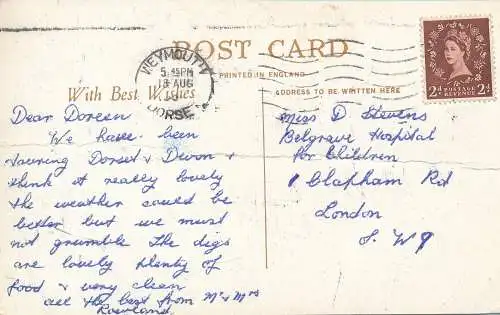 POST CARD
PRINTED IN ENGLAND
With Best Wishes
ADDRESS TO BE WRITTEN HERE
WEYMOUTH
5.45PM
18 AUG
19
DORSET
2D POSTAGE REVENUE 2D
Dear Doreen
We have been
touring Dorset & Devon &
think it really lovely
the weather could be
better but we must
not grumble the digs
are lovely plenty of
food & very clean
all the best from Mr & Mrs
Rowland
Miss D Stevens
Belgrave Hospital
for Children
1 Clapham Rd
London
S. W 9